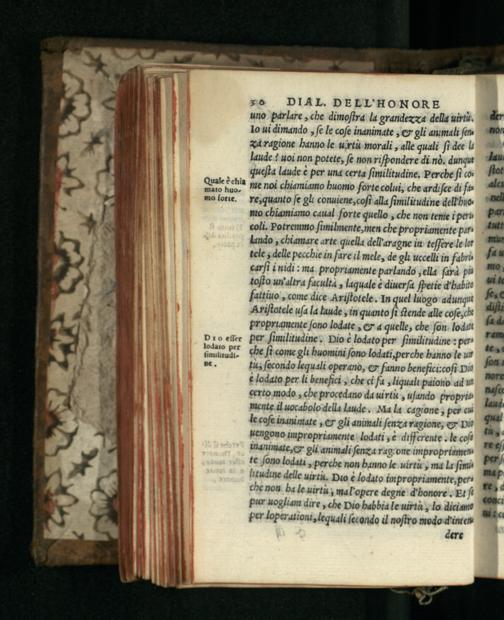 50 DIAL. DELL'HONORE
uno parlare, che dimostra la grandezza della uirtù.
Io ui dimando, se le cose inanimate, & gli animali sen
za ragione hanno le uirtù morali, alle quali si dee la
laude? uoi non potete, se non rispondere di nò. dunque
questa laude è per una certa similitudine. Perche si co
me noi chiamiamo huomo forte colui, che ardisce di fa
re, quanto se gli conuiene, cosi alla similitudine dell'huo
mo chiamiamo caual forte quello, che non teme i peri
coli. Potremmo similmente, men che propriamente par
lando, chiamare arte quella dell'aragne in tessere le lor
tele, delle pecchie in fare il mele, de gli uccelli in fabri
carsi i nidi: ma propriamente parlando, ella sarà piu
tosto un'altra facultà, laquale è diuersa spetie d'habito
fattiuo, come dice Aristotele. In quel luogo adunque
Aristotele usa la laude, in quanto si stende alle cose, che
propriamente sono lodate, & a quelle, che son lodate
per similitudine. Dio è lodato per similitudine: per
che si come gli huomini sono lodati, perche hanno le uir
tù, secondo lequali operano, & fanno benefici: cosi Dio
è lodato per li benefici, che ci fa, liquali paiono ad un
certo modo, che procedano da uirtù, usando propria
mente il uocabolo della laude. Ma la cagione, per cui
le cose inanimate, & gli animali senza ragione, & Dio
uengono impropriamente lodati, è differente. le cose
inanimate, & gli animali senza ragione impropriamen
te sono lodati, perche non hanno le uirtù, ma la simi
litudine delle uirtù. Dio è lodato impropriamente, per
che non ha le uirtù, ma l'opere degne d'honore. Et se
pur uogliam dire, che Dio habbia le uirtù, lo diciamo
per l'operationi, lequali secondo il nostro modo d'inten
dere
Quale è chia
mato huo-
mo forte.
DIO esser
lodato per
similitudi-
ne.